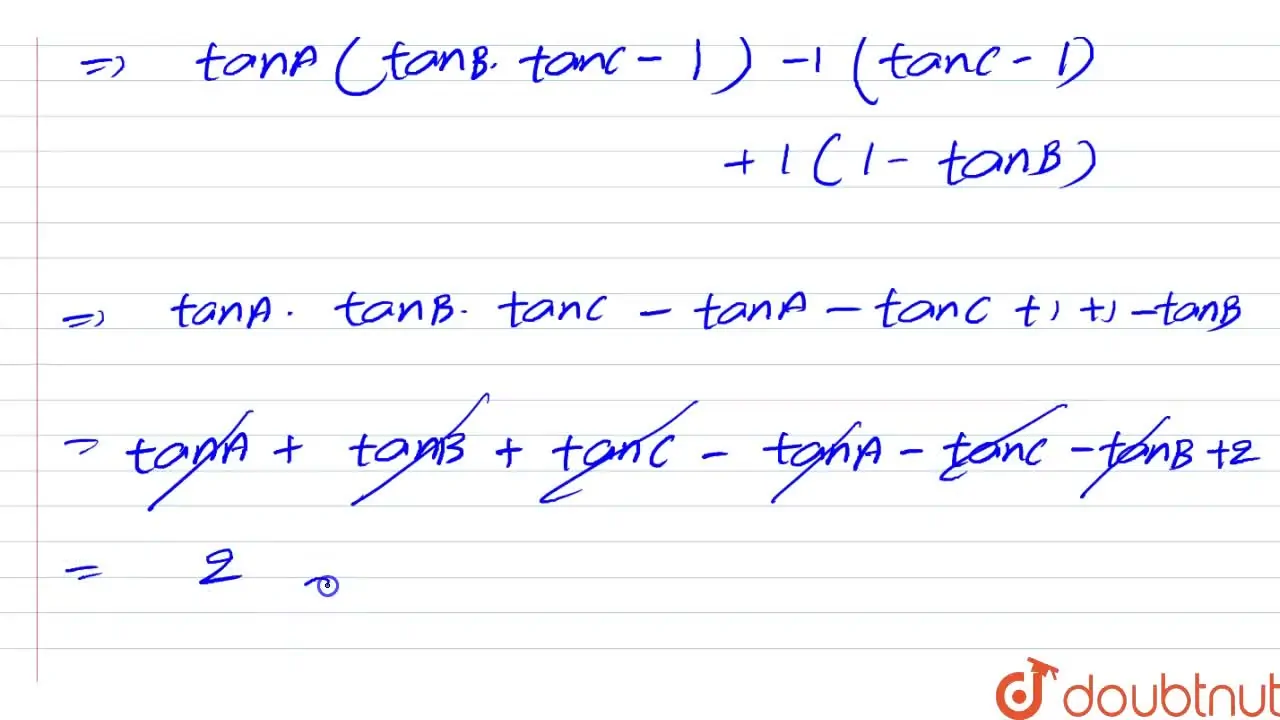 => tanA (tanB. tanC - 1) -1 (tanC - 1)
+ 1 (1 - tanB)
=> tanA. tanB. tanC - tanA - tanC +1 +1 -tanB
= tanA + tanB + tanC - tanA - tanC - tanB +2
= 2
doubtnut